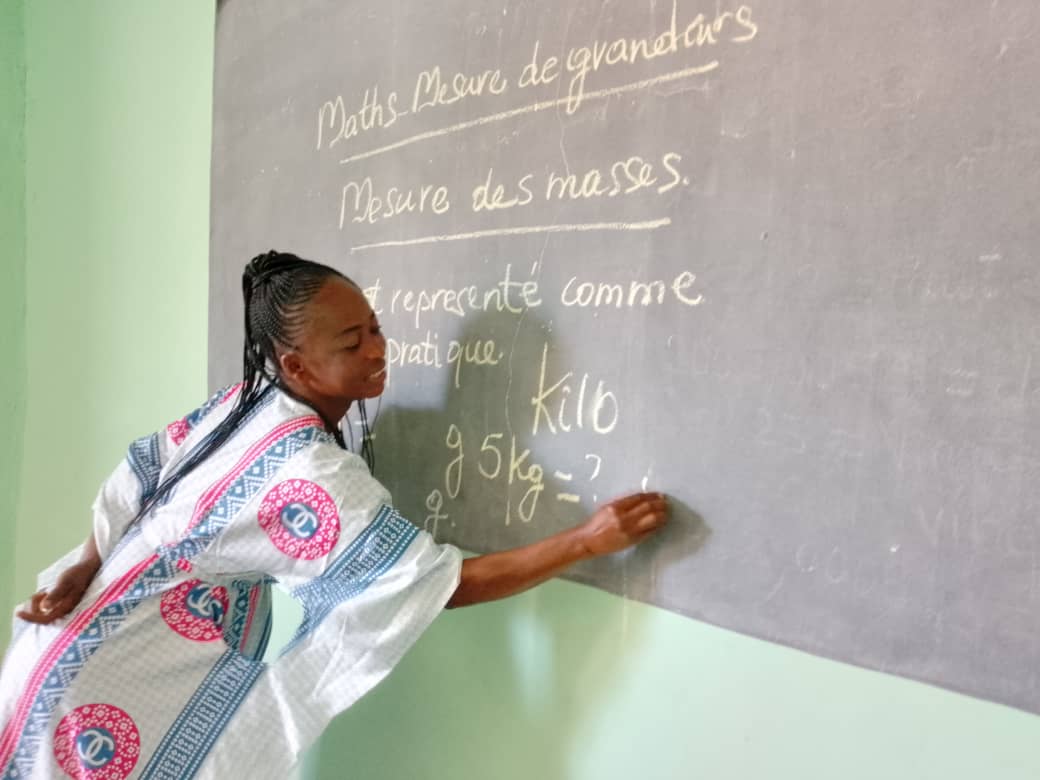 Maths-Mesure de grandeurs
Mesure des masses.
represénté comme
pratique.
Kilo
g 5kg = ?
g.